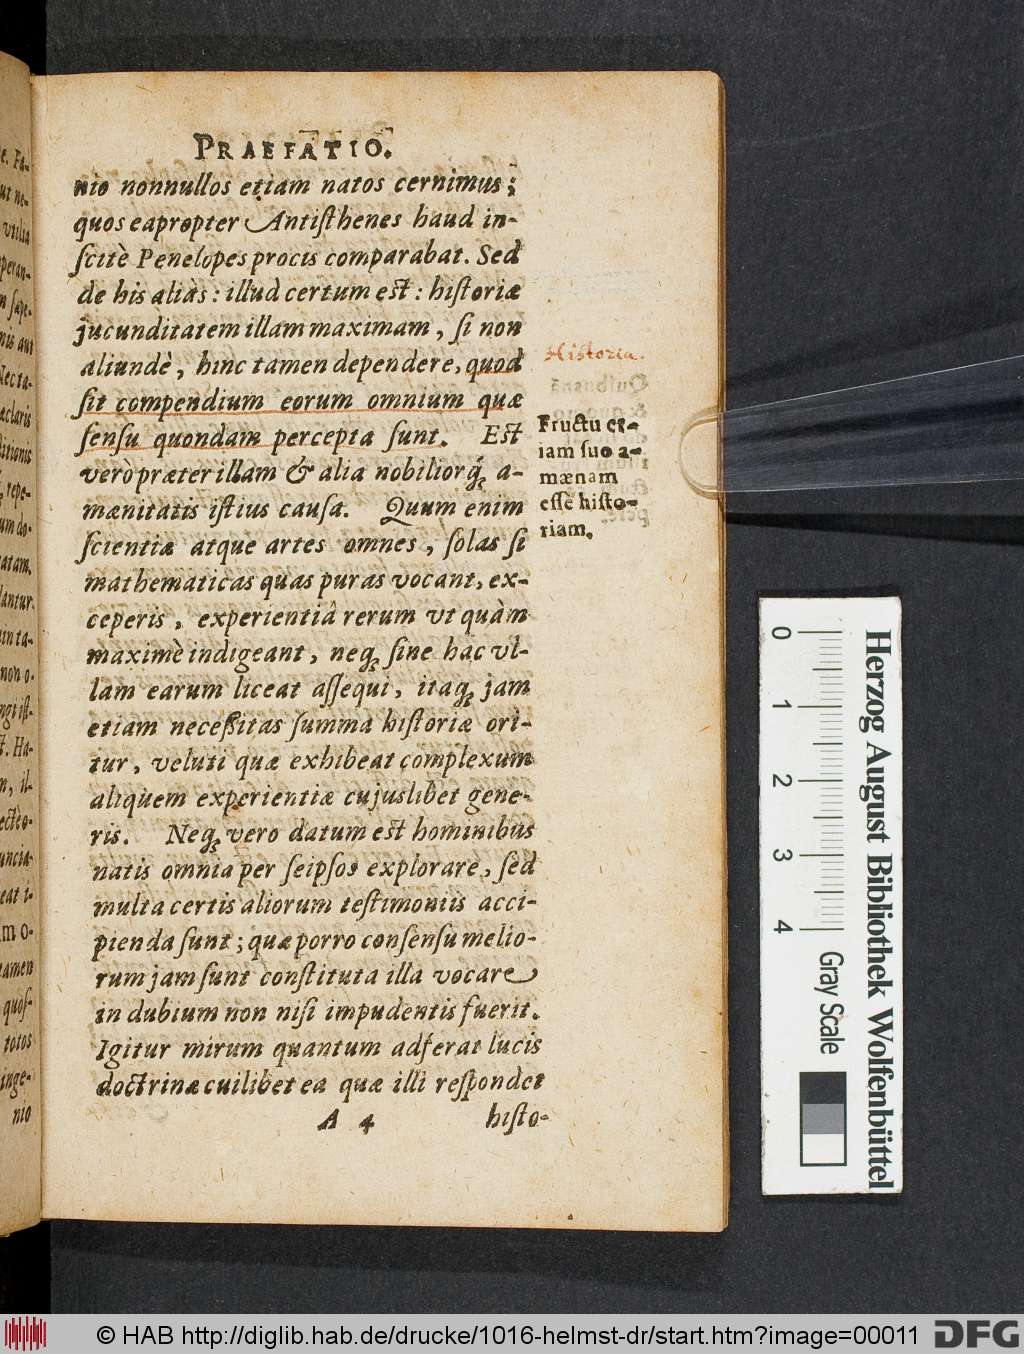 PRAEFATIO.
nio nonnullos etiam natos cernimus;
quos eapropter Antiſthenes haud in-
ſcitè Penelopes procis comparabat. Sed
de his aliàs: illud certum eſt: hiſtoriæ
jucunditatem illam maximam, ſi non
aliundè, hinc tamen dependere, quod
ſit compendium eorum omnium quæ
ſenſu quondam percepta ſunt. Eſt
verò præter illam & alia nobiliorq́; a-
mænitatis iſtius cauſa. Quum enim
ſcientiæ atque artes omnes, ſolas ſi
mathematicas quas puras vocant, ex-
ceperis, experientiâ rerum vt quàm
maximè indigeant, neq; ſine hac vl-
lam earum liceat aſſequi, itaq; jam
etiam neceſſitas ſumma hiſtoriæ ori-
tur, veluti quæ exhibeat complexum
aliquem experientiæ cujuslibet gene-
ris. Neq; vero datum eſt hominibus
natis omnia per ſeipſos explorare, ſed
multa certis aliorum teſtimoniis acci-
pienda ſunt; quæ porro conſenſu melio-
rum jam ſunt conſtituta illa vocare
in dubium non niſi impudentis fuerit.
Igitur mirum quantum adferat lucis
doctrinæ cuilibet ea quæ illi reſpondet
A 4 hiſto-
Hiſtoria.
Fructu et-
iam ſuo a-
mænam
eſſe hiſto-
riam.
e. Fa-
ut ne-
vtilia
peran-
nis aut
Necta-
aclaris
ditionis
, repe-
um do-
atam.
lantur
in ta-
non o-
ngi iſt-
t. Ha-
n, il-
ectèo-
uncta-
eat i-
m o-
tamen
quoſ-
totos
inge-
nio
0 1 2 3 4
Gray Scale
Herzog August Bibliothek Wolfenbüttel
© HAB http://diglib.hab.de/drucke/1016-helmst-dr/start.htm?image=00011
DFG